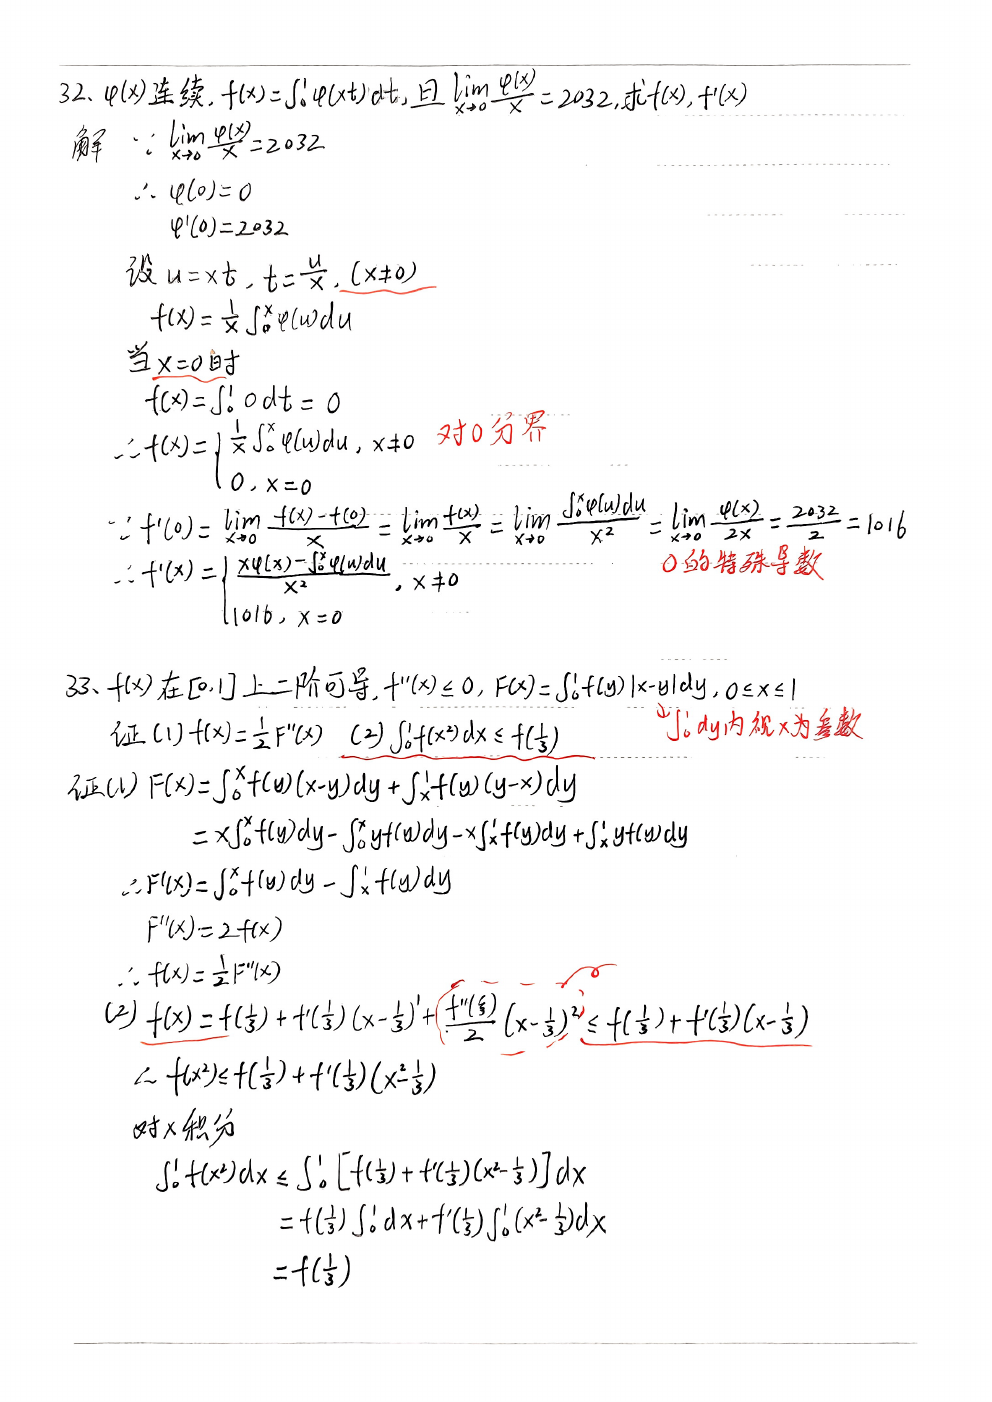 32、φ(x)连续，f(x)=∫₀¹φ(xt)dt，且 lim_{x→0} φ(x)/x =2032，求f(x)，f'(x)
解 ∵ lim_{x→0} φ(x)/x =2032
∴ φ(0)=0
φ'(0)=2032
设 u=xt，t=u/x，(x≠0)
f(x)=1/x ∫₀ˣφ(u)du
当x=0时
f(x)=∫₀¹ 0 dt = 0
∴f(x)={ 1/x ∫₀ˣ φ(u)du，x≠0 对0分界
0，x=0
∵ f'(0)= lim_{x→0} (f(x)-f(0))/x = lim_{x→0} f(x)/x = lim_{x→0} ∫₀ˣφ(u)du/x² = lim_{x→0} φ(x)/2x = 2032/2 =1016
∴ f'(x)={ (xφ(x)-∫₀ˣφ(u)du)/x²，x≠0 0的特殊导数
1016，x=0
33、f(x)在[0,1]上二阶可导，f''(x)≤0，F(x)=∫₀¹f(y)|x-y|dy，0≤x≤1
证(1) f(x)=1/2 F''(x) (2)∫₀¹f(x²)dx≤f(1/3) ↓∫₀¹dy内视x为参数
证(1) F(x)=∫₀ˣf(y)(x-y)dy+∫ₓ¹f(y)(y-x)dy
=x∫₀ˣf(y)dy-∫₀ˣyf(y)dy-x∫ₓ¹f(y)dy+∫ₓ¹yf(y)dy
∴F'(x)=∫₀ˣf(y)dy-∫ₓ¹f(y)dy
F''(x)=2f(x)
∴ f(x)=1/2 F''(x)
(2) f(x)=f(1/3)+f'(1/3)(x-1/3)¹+f''(ξ)/2 (x-1/3)²≤f(1/3)+f'(1/3)(x-1/3)
∴ f(x²)≤f(1/3)+f'(1/3)(x²-1/3)
对x积分
∫₀¹f(x²)dx≤∫₀¹[f(1/3)+f'(1/3)(x²-1/3)]dx
=f(1/3)∫₀¹dx+f'(1/3)∫₀¹(x²-1/3)dx
=f(1/3)